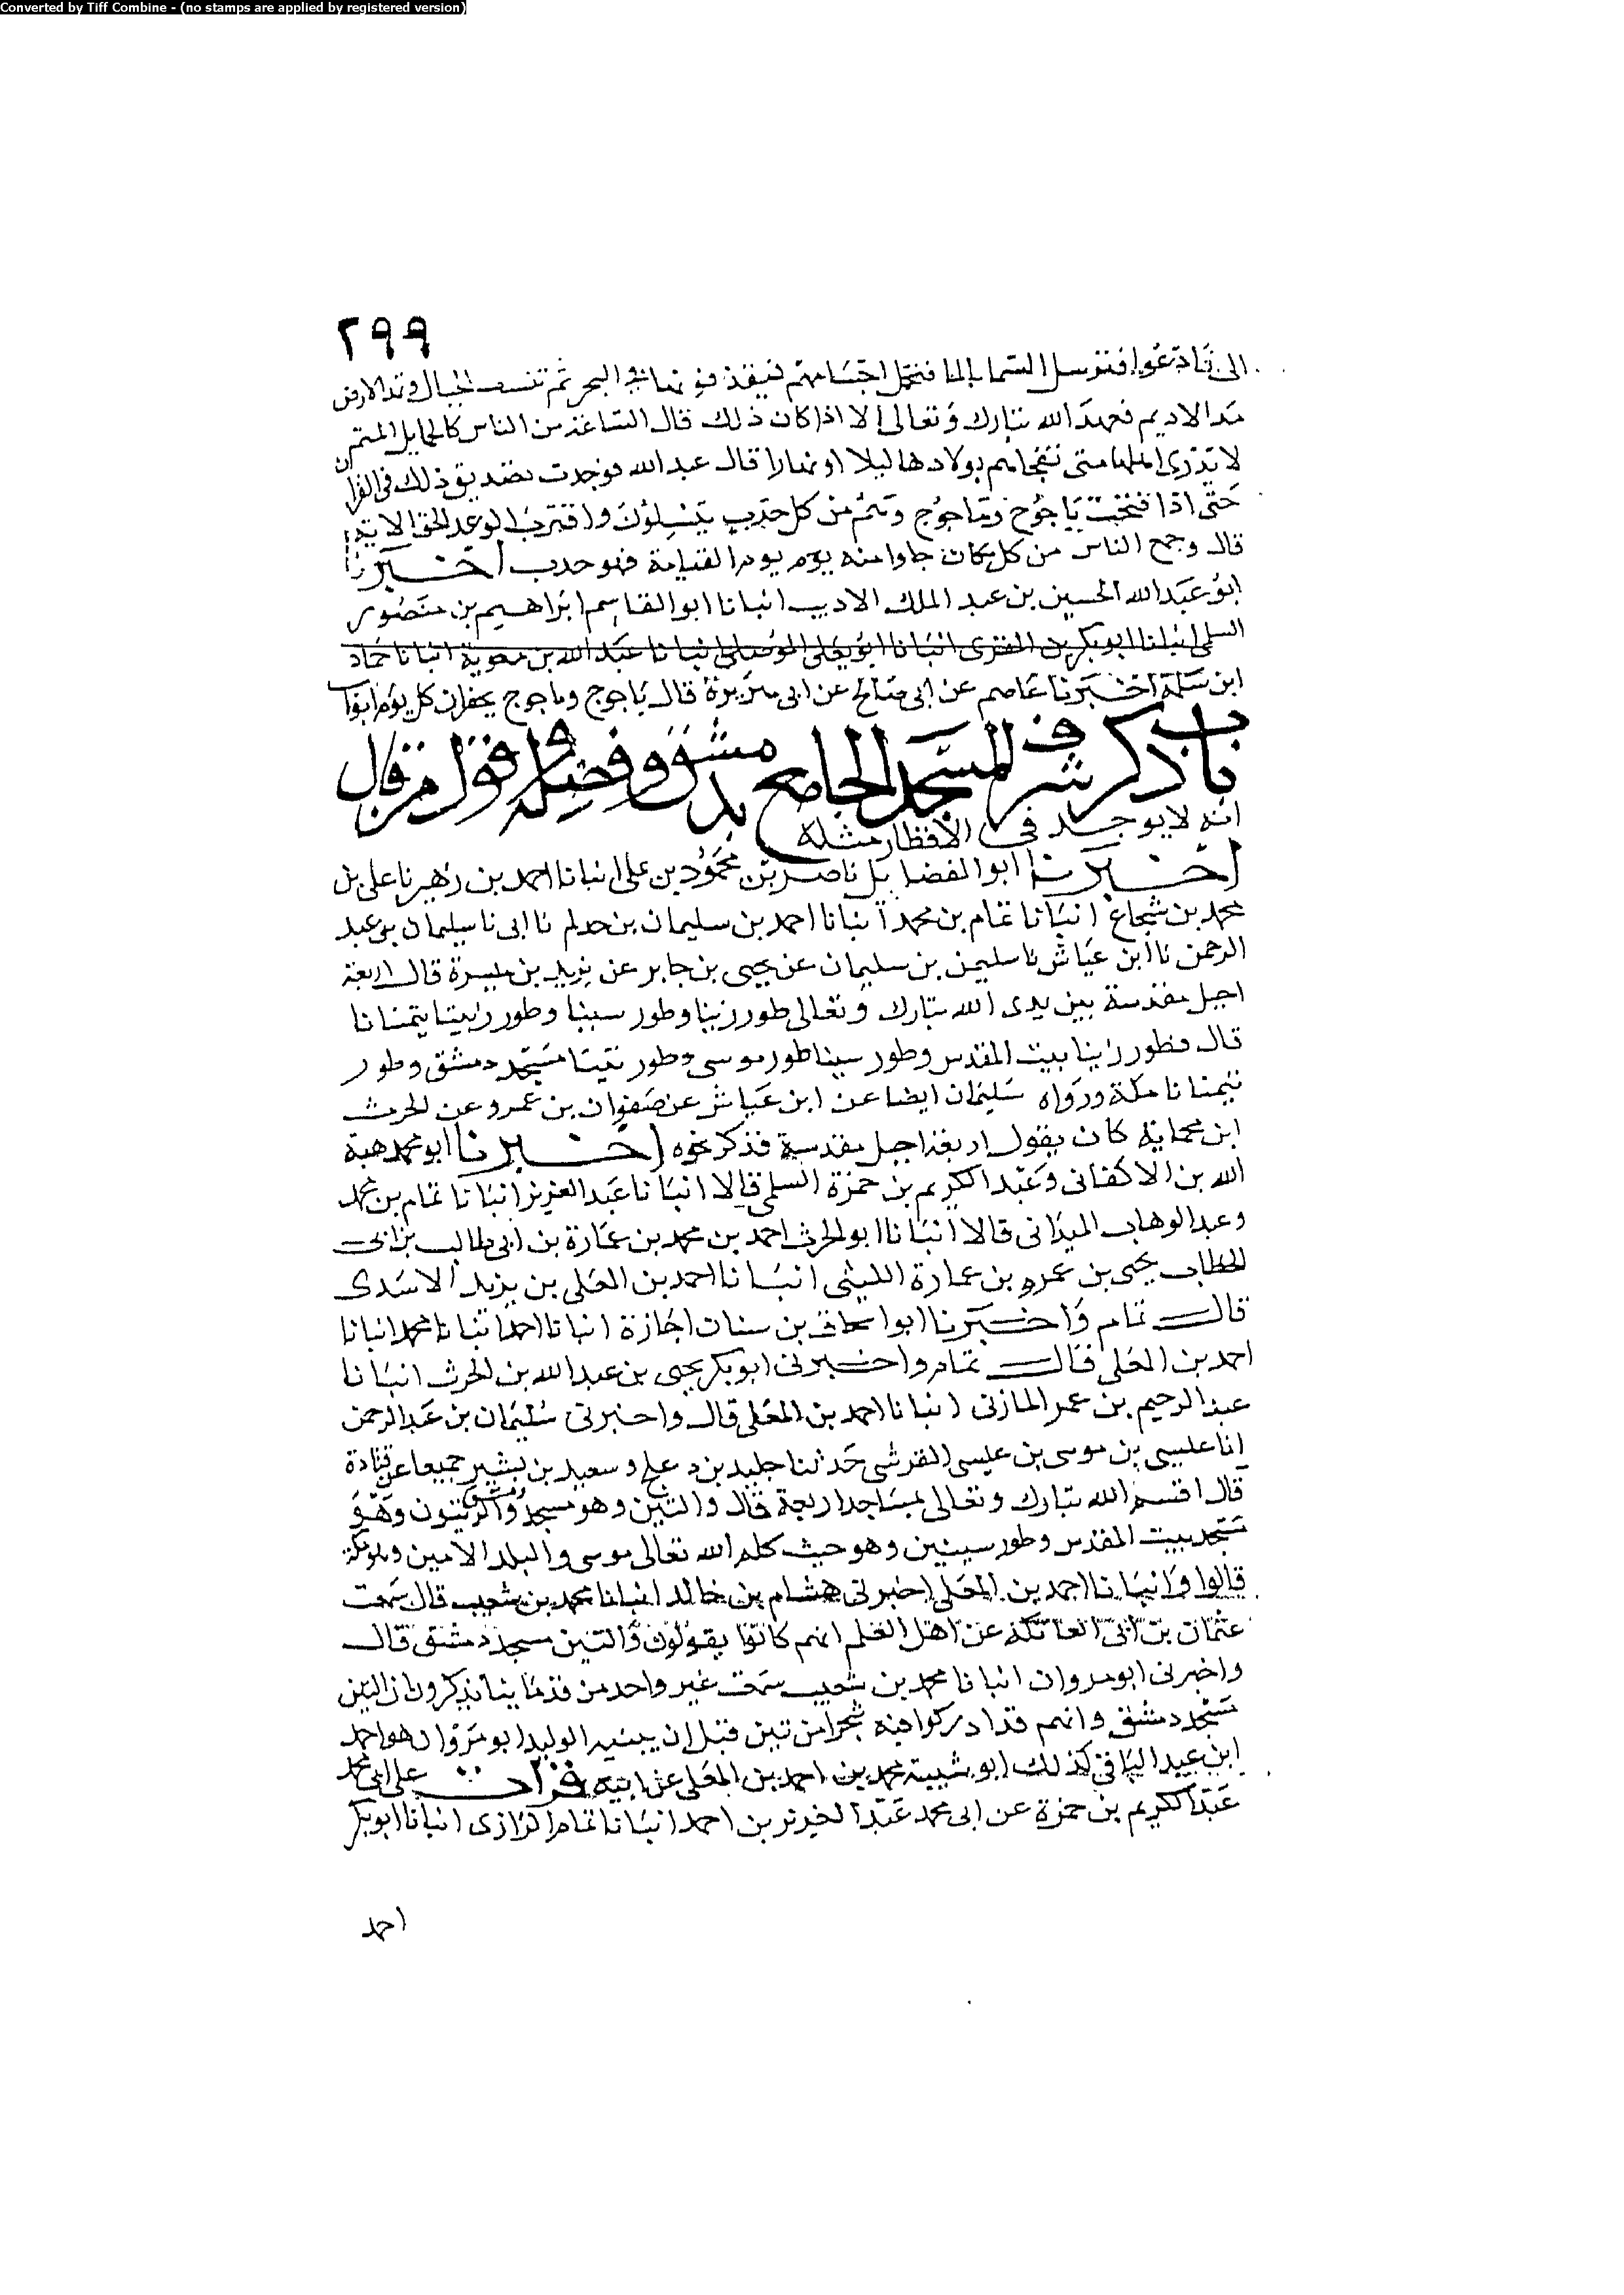 Converted by Tiff Combine - (no stamps are applied by registered version)
٢٩٩
الى فادعوا فترسل السما بالما فتحمل اجسامهم فيقذفونها في البحر ثم تنسف الجبال وتمد الارض
مد الاديم فعهد الله تبارك وتعالى الا اذا كان ذلك قال الساعة من الناس كالحامل المتم
لا يدرى اهلها متى تفجاهم بولادها ليلا او نهارا قال عبد الله فوجدت تصديق ذلك في القران
حتى اذا فتحت ياجوج وماجوج وهم من كل حدب ينسلون واقترب الوعد الحق الاية
قال وجمح الناس من كل مكان جاوا منه يوم يوم القيامة فهو حدب اخبرنا
ابو عبد الله الحسين بن عبد الملك الاديب انبانا ابو القاسم ابراهيم بن منصور
السلمى انبانا ابو بكر بن المقرى انبانا ابو يعلى الموصلى انبانا عبد الله بن معوية انبانا حماد
ابن سلمة اخبرنا عاصم عن ابى صالح عن ابى هريرة قال ياجوج وماجوج يحفران كل يوم
باب ذكر شرف المسجد الجامع بدمشق وفضله وقول من قال
انه لا يوجد في الاقطار مثله
اخبرنا ابو الفضايل ناصر بن محمود بن على انبانا احمد بن زهير نا على بن
محمد بن شجاع انبانا تمام بن محمد انبانا احمد بن سليمان بن حدلم نا ابى نا سليمان بن عبد
الرحمن نا ابن عياش نا سليمن بن سليمان عن يحيى بن جابر عن يزيد بن ميسرة قال اربعة
اجبل مقدسة بين يدى الله تبارك وتعالى طور زيتا وطور سينا وطور تيتا وتيمنانا
قال فطور زيتا بيت المقدس وطور سينا طور موسى وطور تيتا مسجد دمشق وطور
تيمنانا مكة ورواه سليمان ايضا عن ابن عياش عن صفوان بن عمرو عن الحرث
ابن محمانة كان يقول اربعة اجبل مقدسة فذكر نحوه اخبرنا ابو محمد هبة
الله بن الاكفانى وعبد الكريم بن حمزة السلمى قالا انبانا عبد العزيز انبانا تمام بن محمد
وعبد الوهاب الميدانى قالا انبانا ابو الحرث احمد بن محمد بن عمارة بن ابى طالب بن ابى
الخطاب يحيى بن عمرو بن عمارة الليثى انبانا احمد بن المعلى بن يزيد الاسدى
قال تمام واخبرنا ابو اسحاق بن سنان اجازة انبانا احمد انبانا محمد انبانا
احمد بن المعلى قال تمام واخبرنى ابو بكر يحيى بن عبد الله بن الحرث انبانا
عبد الرحيم بن عمر المازنى انبانا احمد بن المعلى قال واخبرنى سليمان بن عبد الرحمن
انا عيسى بن موسى بن عيسى القرشى حدثنا خليد بن دعلج وسعيد بن بشير جميعا عن قتادة
قال اقسم الله تبارك وتعالى بمساجد اربعة قال والتين وهو مسجد دمشق والزيتون وهو
مسجد بيت المقدس وطور سينين وهو حيث كلم الله تعالى موسى والبلد الامين وهو مكة
قالوا وانبانا احمد بن المعلى اخبرنى هشام بن خالد انبانا محمد بن شعيب قال سمعت
عثمان بن ابى العاتكة عن اهل العلم انهم كانوا يقولون والتين مسجد دمشق قال
واخبرنى ابو مروان انبانا محمد بن شعيب سمعت غير واحد من قدمائنا يذكرون ان التين
مسجد دمشق وانهم قد ادركوا فيه شجرا من تين قبل ان يبنيه الوليد ابو مروان هو احمد
ابن عبد الباقى كذلك ابو شيبة محمد بن احمد بن المعلى عن ابيه قرات على ابى محمد
عبد الكريم بن حمزة عن ابى محمد عبد العزيز بن احمد انبانا تمام الرازى انبانا ابو بكر
احمد